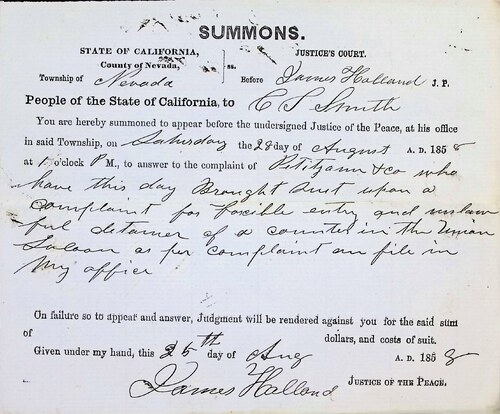 SUMMONS.
STATE OF CALIFORNIA, JUSTICE'S COURT.
County of Nevada, ss.
Township of Nevada Before James Holland J. P.
People of the State of California, to C S Smith
You are hereby summoned to appear before the undersigned Justice of the Peace, at his office
in said Township, on Saturday the 28 day of August A. D. 1858
at 1 o'clock P M., to answer to the complaint of & co who
have this day Brought Suit upon a
complaint for forcible entry and unlaw
ful detainer of a counter in the Union
Saloon as per complaint on file in
my office
On failure so to appear and answer, Judgment will be rendered against you for the said sum
of dollars, and costs of suit.
Given under my hand, this 25th day of Aug A. D. 1858
James Holland JUSTICE OF THE PEACE,